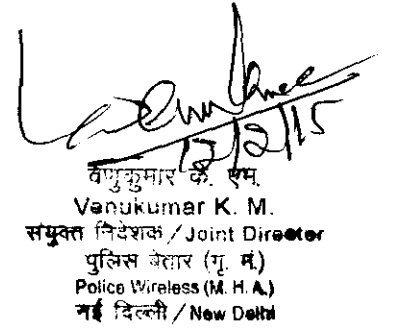 12/2/15
वेणुकुमार के. एम.
Venukumar K. M.
संयुक्त निदेशक / Joint Director
पुलिस बेतार (गृ. मं.)
Police Wireless (M. H. A.)
नई दिल्ली / New Delhi